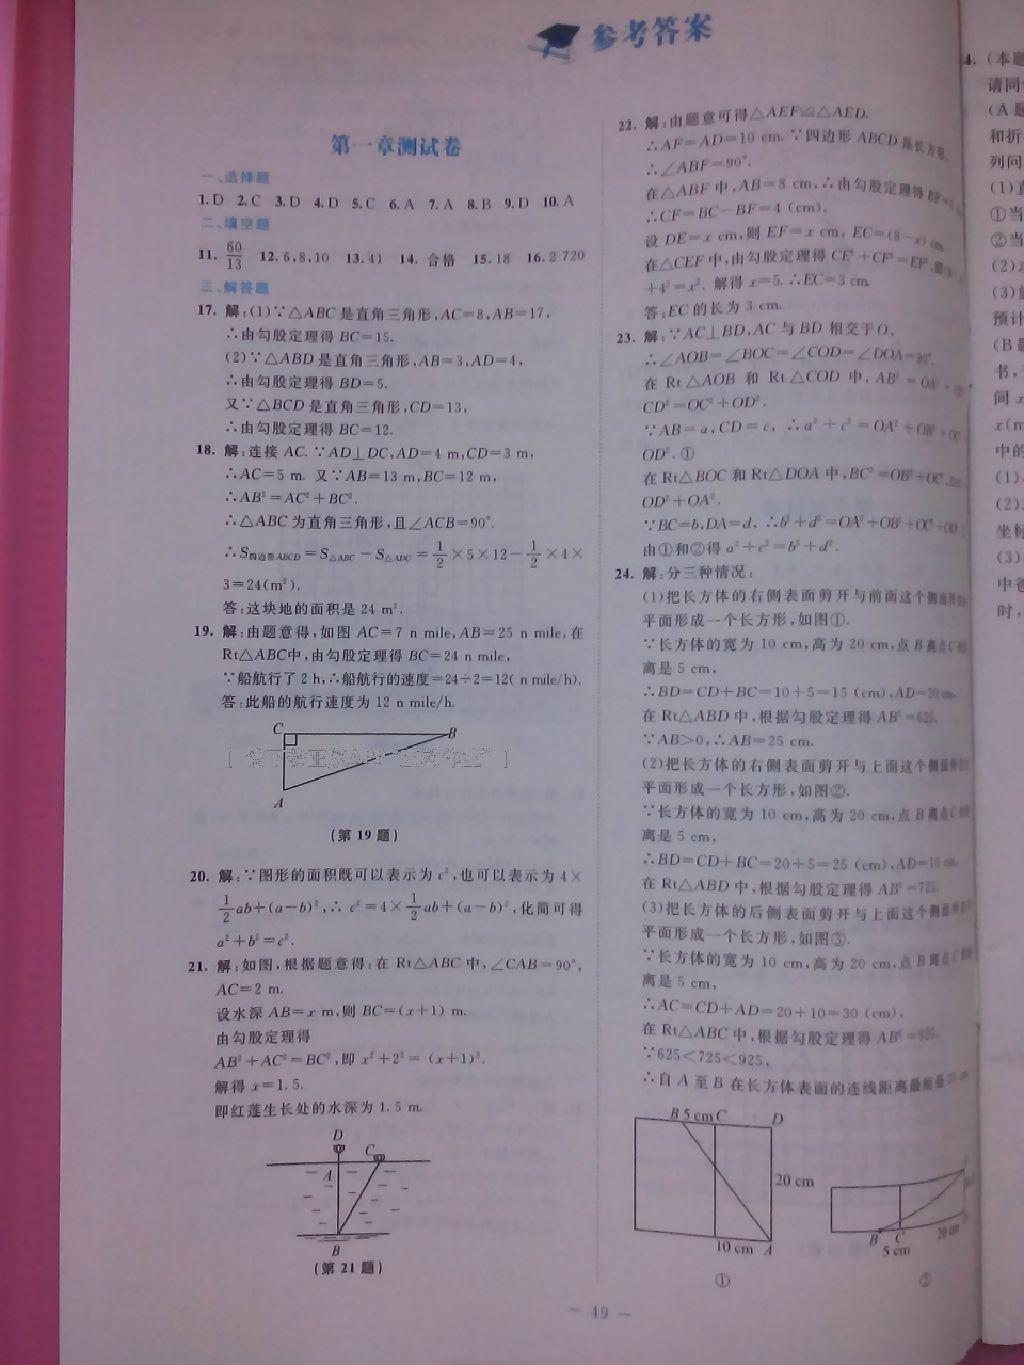 参考答案
第一章测试卷
一、选择题
1.D 2.C 3.D 4.D 5.C 6.A 7.A 8.B 9.D 10.A
二、填空题
11. 60/13 12.6,8,10 13.41 14. 合格 15.18 16.2 720
三、解答题
17. 解:(1)∵△ABC是直角三角形,AC=8,AB=17,
∴由勾股定理得 BC=15.
(2)∵△ABD是直角三角形,AB=3,AD=4,
∴由勾股定理得 BD=5.
又∵△BCD是直角三角形,CD=13,
∴由勾股定理得 BC=12.
18. 解:连接 AC. ∵AD⊥DC,AD=4 m,CD=3 m,
∴AC=5 m. 又∵AB=13 m,BC=12 m,
∴AB²=AC²+BC².
∴△ABC为直角三角形,且∠ACB=90°.
∴S四边形ABCD=S△ABC-S△ADC=1/2×5×12-1/2×4×
3=24(m²).
答:这块地的面积是 24 m².
19. 解:由题意得,如图 AC=7 n mile,AB=25 n mile,在
Rt△ABC中,由勾股定理得 BC=24 n mile,
∵船航行了 2 h,∴船航行的速度=24÷2=12( n mile/h).
答:此船的航行速度为 12 n mile/h.
C
B
A
(第19题)
20. 解:∵图形的面积既可以表示为 c²,也可以表示为 4×
1/2ab+(a-b)²,∴ c²=4×1/2ab+(a-b)²,化简可得
a²+b²=c².
21. 解:如图,根据题意得:在 Rt△ABC中,∠CAB=90°,
AC=2 m.
设水深 AB=x m,则 BC=(x+1) m.
由勾股定理得
AB²+AC²=BC²,即 x²+2²=(x+1)².
解得 x=1.5.
即红莲生长处的水深为 1.5 m.
D
C
A
B
(第21题)
22. 解:由题意可得△AEF≌△AED.
∴AF=AD=10 cm. ∵四边形 ABCD是长方形,
∴∠ABF=90°.
在△ABF中,AB=8 cm,∴由勾股定理得
∴CF=BC-BF=4 (cm).
设 DE=x cm,则 EF=x cm, EC=(8-x) cm
在△CEF中,由勾股定理得 CE²+CF²=EF²,
+4²=x². 解得 x=5. ∴EC=3 cm.
答:EC的长为 3 cm.
23. 解:∵AC⊥BD,AC与BD相交于O,
∴∠AOB=∠BOC=∠COD=∠DOA=90°.
在 Rt△AOB 和 Rt△COD 中, AB²=OA²+
CD²=OC²+OD².
∵AB=a,CD=c, ∴a²+c²=OA²+OB²+OC²
OD². ①
在 Rt△BOC 和 Rt△DOA 中,BC²=OB²+OC²,
OD²+OA².
∵BC=b,DA=d, ∴b²+d²=OA²+OB²+OC²+OD²
由①和②得 a²+c²=b²+d².
24. 解:分三种情况:
(1)把长方体的右侧表面剪开与前面这个侧面所在的
平面形成一个长方形,如图①.
∵长方体的宽为 10 cm,高为 20 cm,点B离点C的距
离是 5 cm,
∴BD=CD+BC=10+5=15 (cm),AD=20 cm.
在 Rt△ABD中,根据勾股定理得 AB²=625.
∵AB>0,∴AB=25 cm.
(2)把长方体的右侧表面剪开与上面这个侧面所在的
平面形成一个长方形,如图②.
∵长方体的宽为 10 cm,高为 20 cm,点B离点C的距
离是 5 cm,
∴BD=CD+BC=20+5=25 (cm),AD=10 cm.
在 Rt△ABD中,根据勾股定理得 AB²=725.
(3)把长方体的后侧表面剪开与上面这个侧面所在的
平面形成一个长方形,如图③.
∵长方体的宽为 10 cm,高为 20 cm,点B离点C的距
离是 5 cm,
∴AC=CD+AD=20+10=30 (cm),
在 Rt△ABC中,根据勾股定理得 AB²=925.
∵625<725<925,
∴自 A 至 B 在长方体表面的连线距离最短是25 cm.
B 5 cm C D
20 cm
10 cm A
①
B C
5 cm
20 cm
②
— 49 —
(本题
请同
(A题
和折
列问
(1)
①当
②当
(2)
(3)
预计
(B题
书,
间 x
x(m
中的
(1)
(2)
坐标
(3)
中
时,